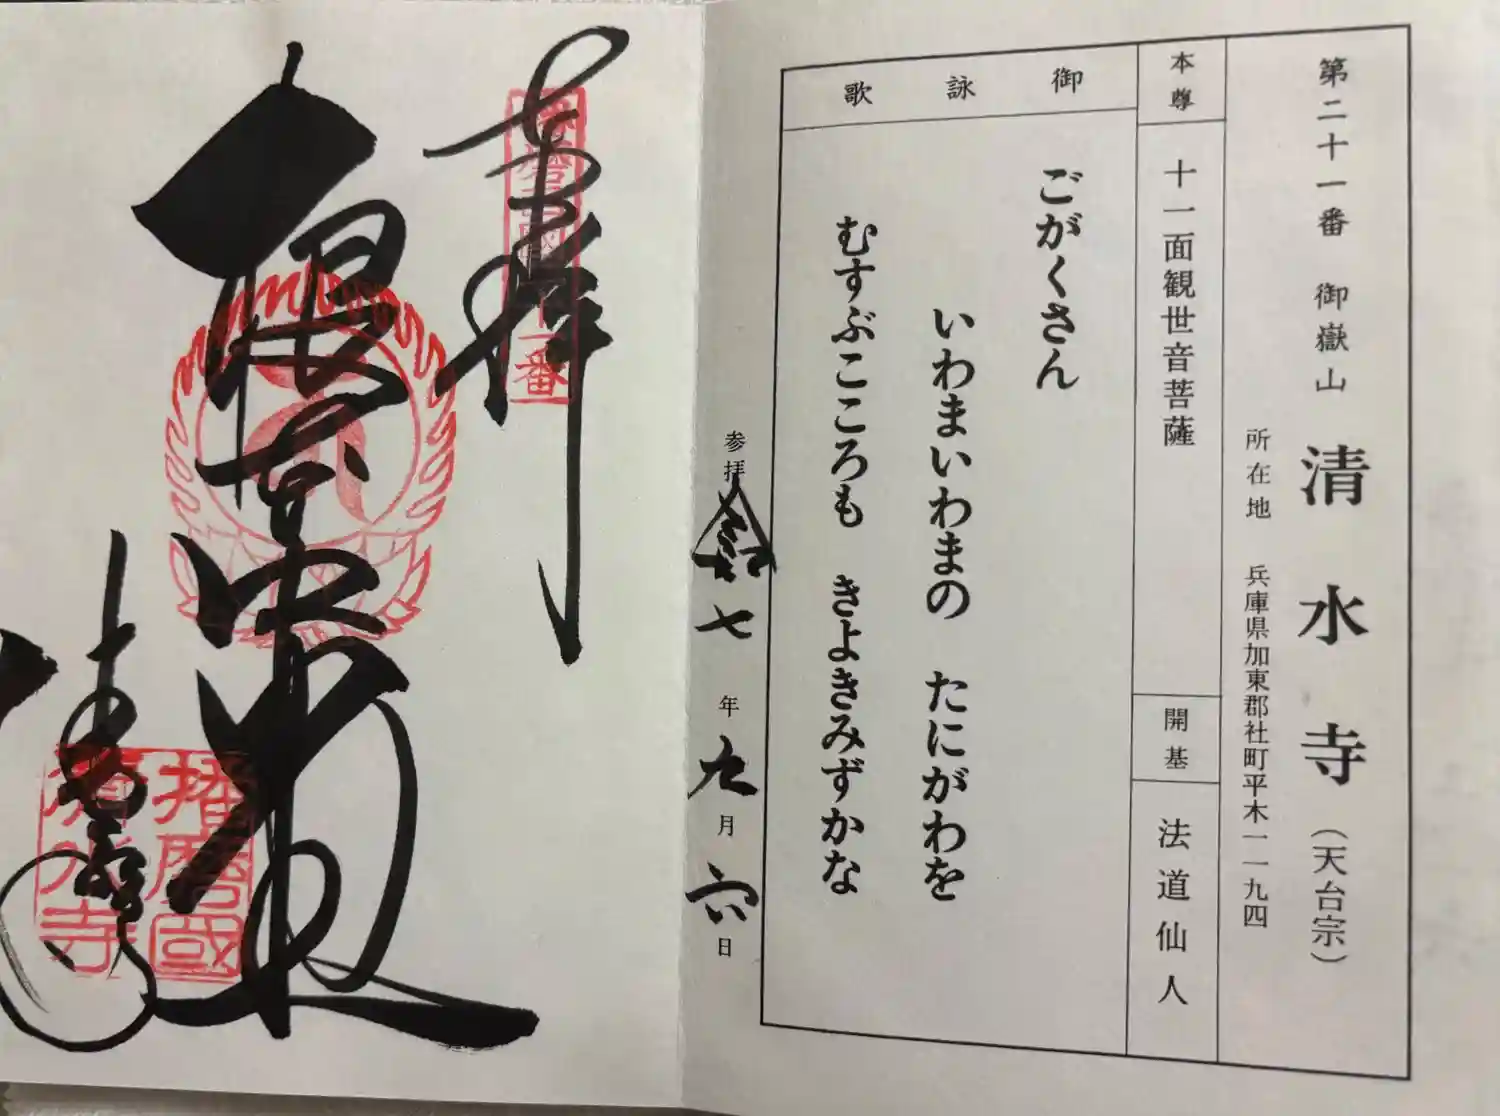 第二十一番 御嶽山 清水寺 (天台宗)
所在地 兵庫県加東郡社町平木一一九四
本尊
十一面観世音菩薩
開基
法道仙人
御詠歌
ごがくさん
いわまいわまの たにがわを
むすぶこころも きよきみずかな
参拝 令和七年九月六日
奉拝
播磨西國二十一番
根本中堂
播磨國
清水寺